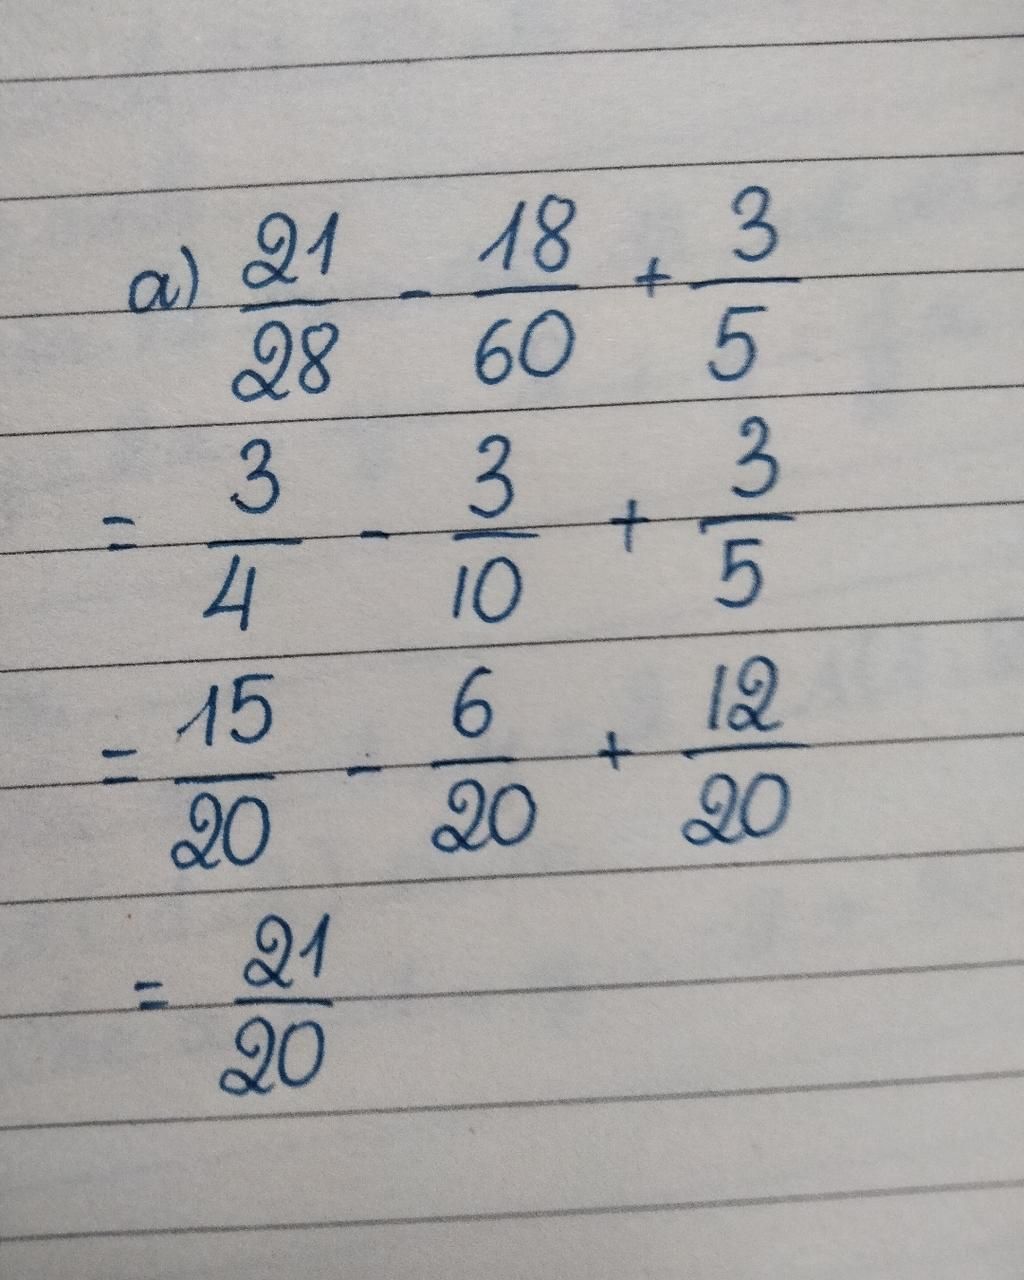 a) 21/28 - 18/60 + 3/5
= 3/4 - 3/10 + 3/5
= 15/20 - 6/20 + 12/20
= 21/20